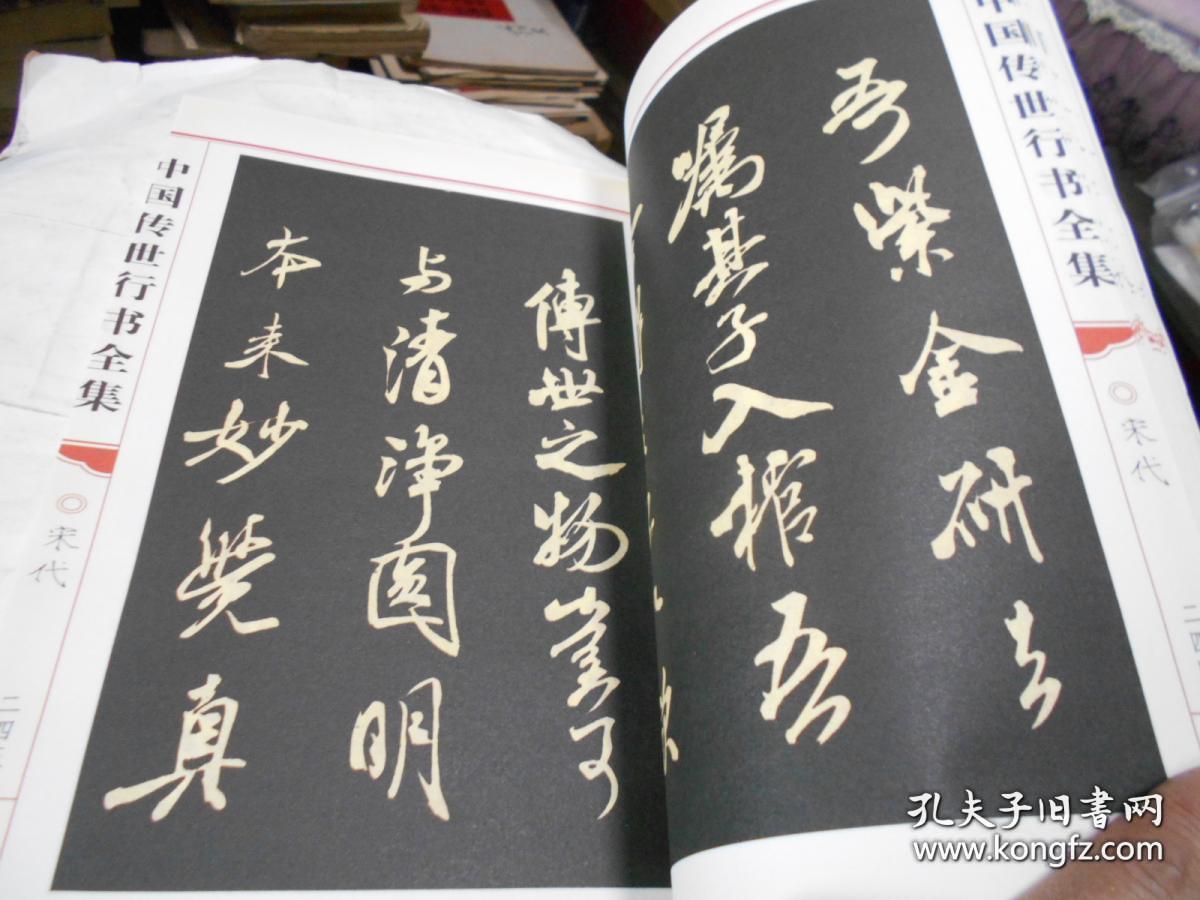 中国传世行书全集
宋代
二四
吾紫金研去
嘱其子入棺吾
傳世之物豈可
与清淨圓明
本来妙覺真
中国传世行书全集
宋代
二四
孔夫子旧書网
www.kongfz.com